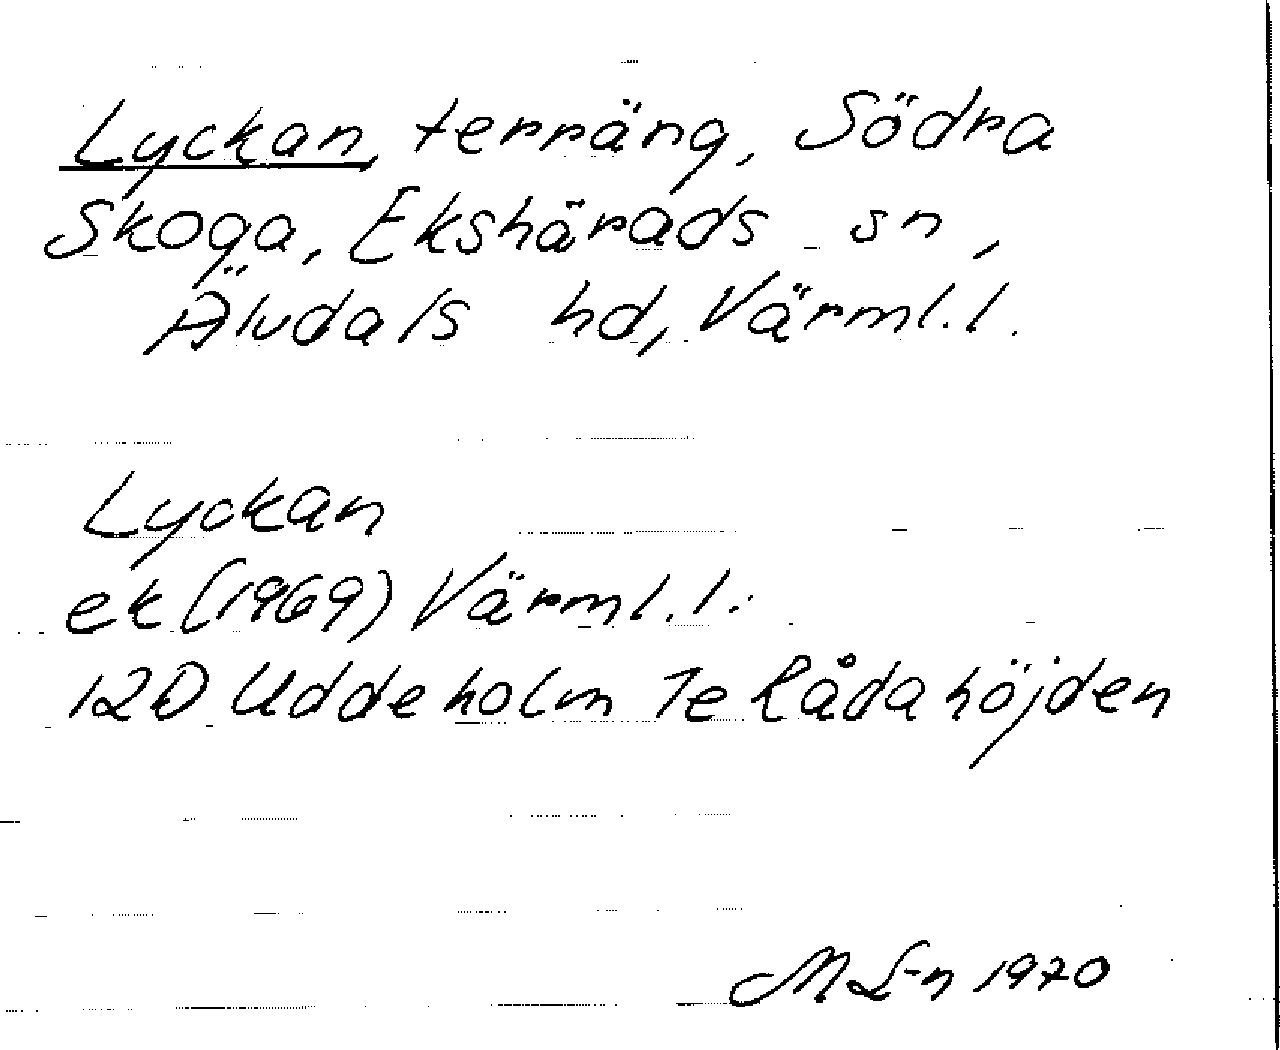 Lyckan, terräng, Södra
Skoga, Ekshärads sn,
Älvdals hd, Värml. l.
Lyckan
ek (1969) Värml. l.:
12D Uddeholm 7e Rådahöjden
M L-n 1970